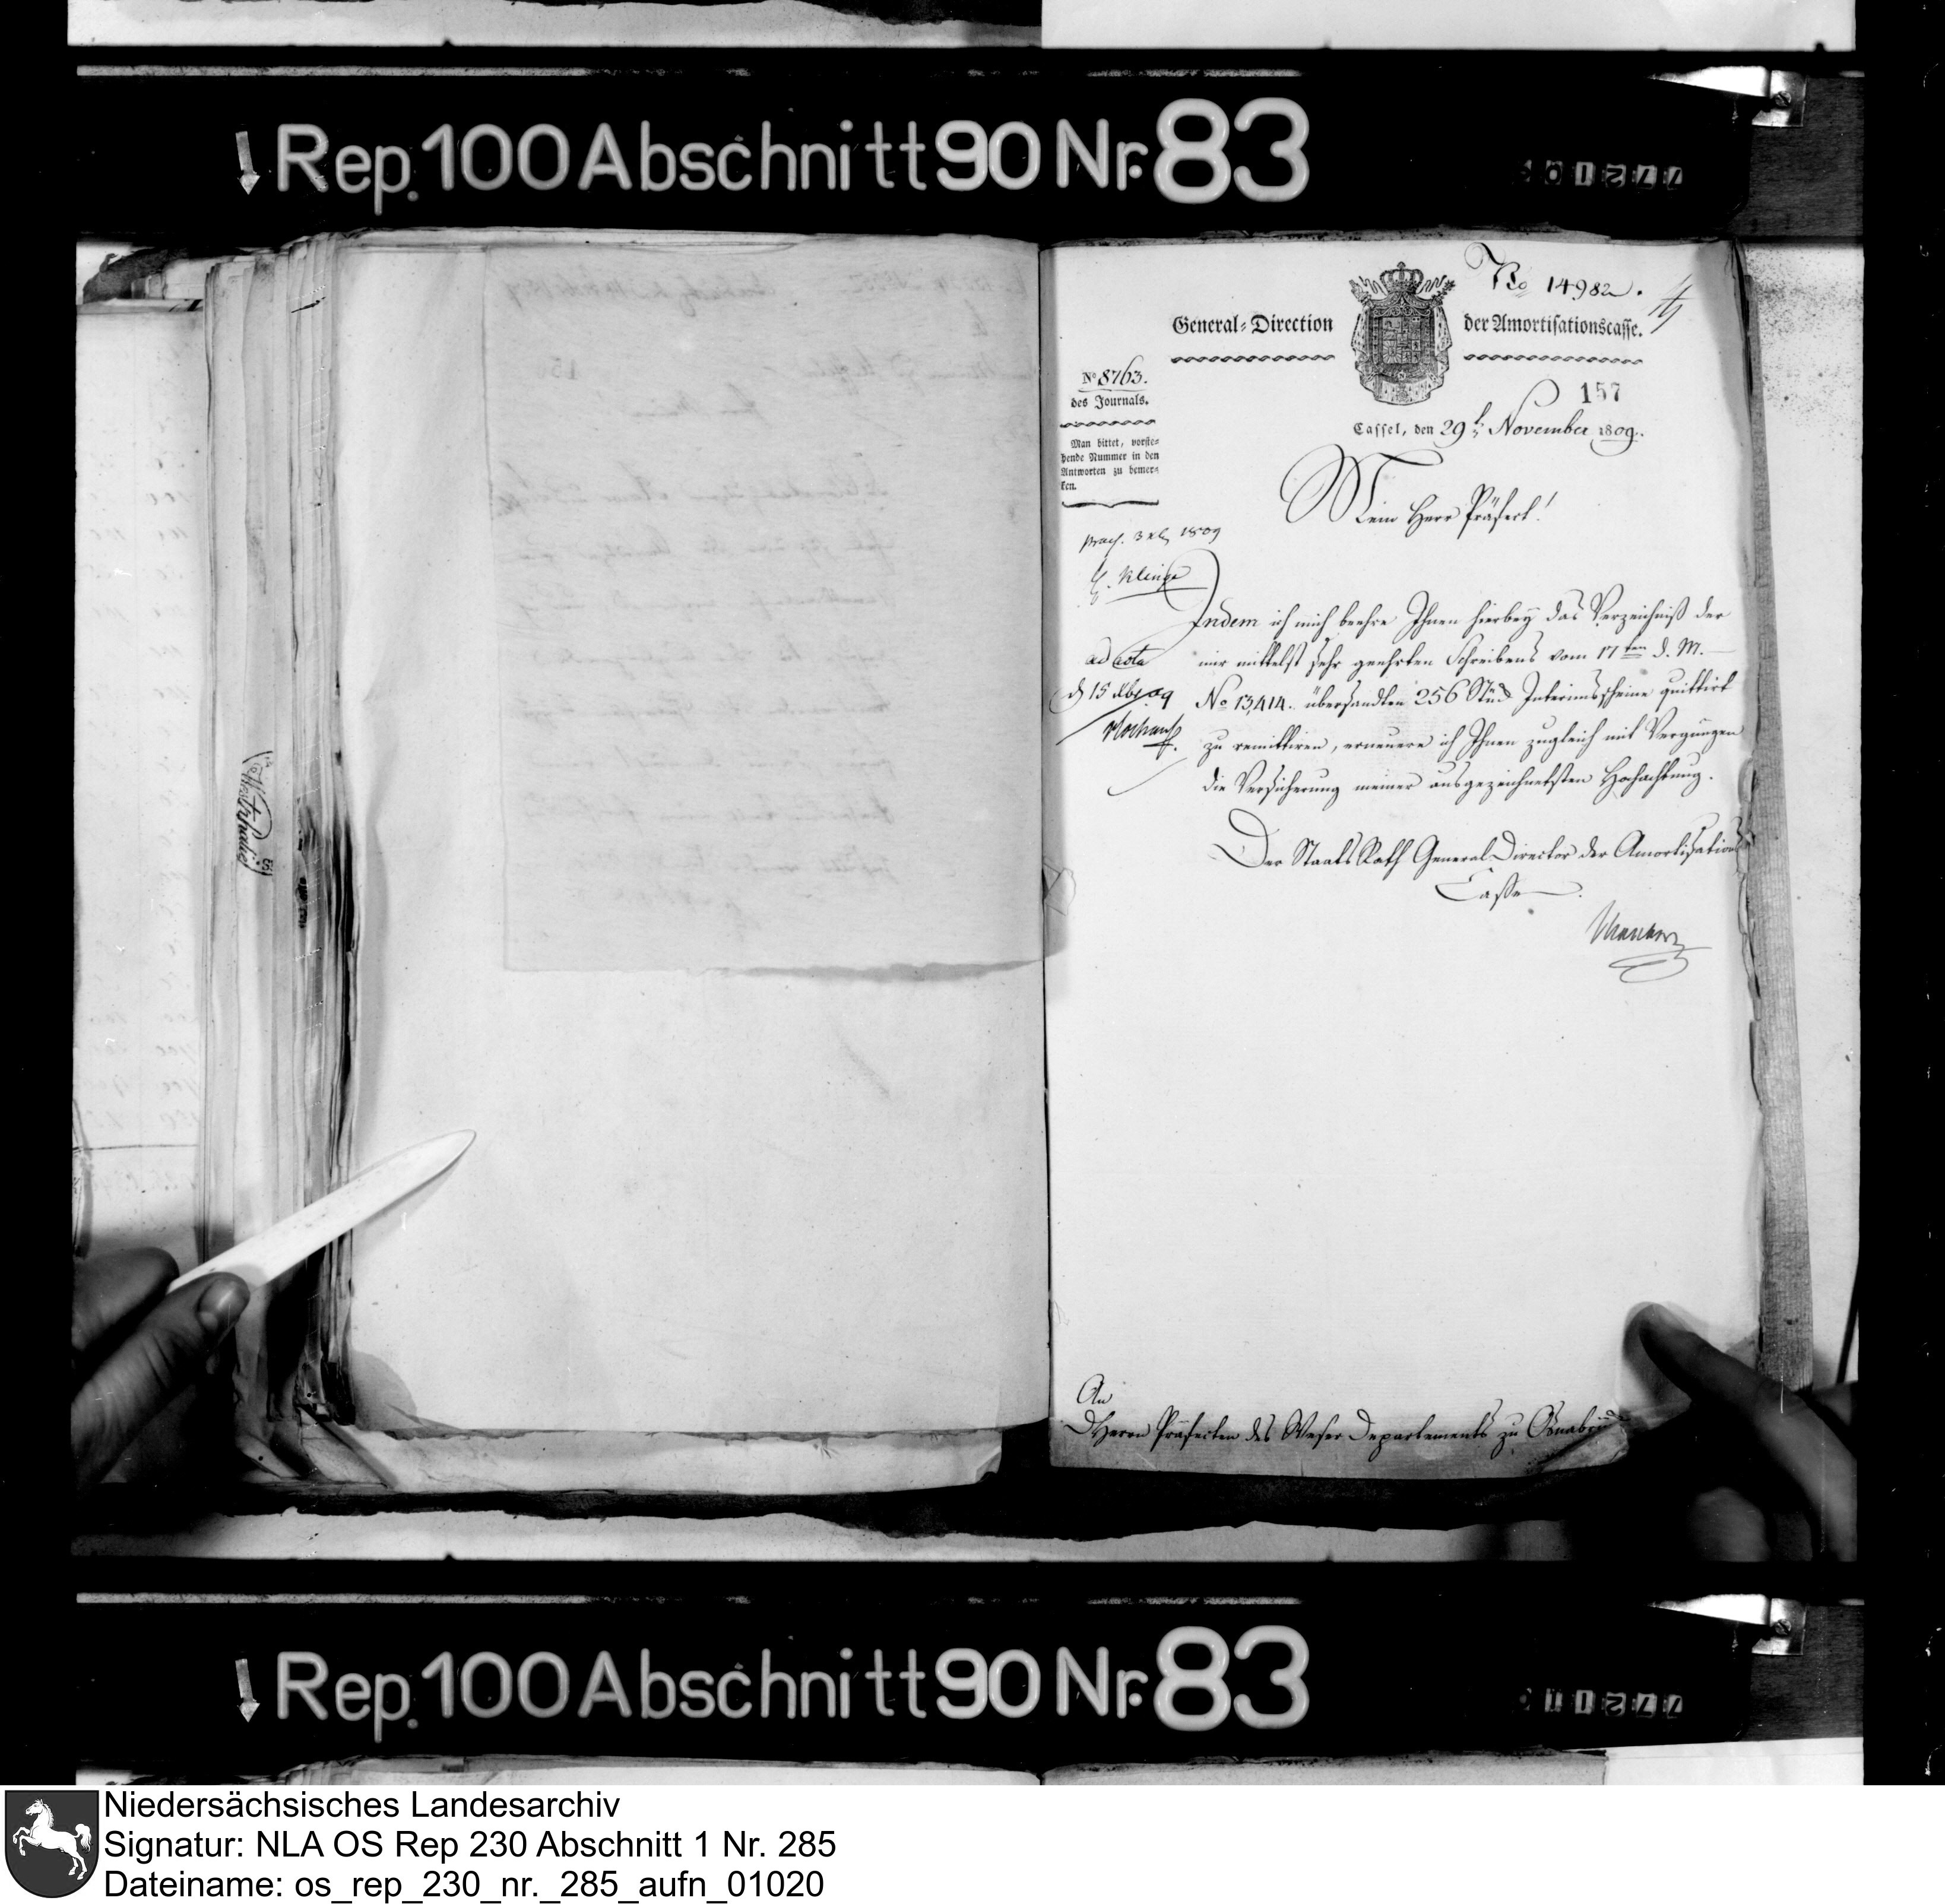 Rep. 100 Abschnitt 90 Nr. 83
No 14982.
General-Direction der Amortisationscasse.
No 8763.
des Journals.
157
Cassel, den 29t November 1809.
Man bittet, vorste-
hende Nummer in den
Antworten zu bemer-
ken.
Mein Herr Präfect!
praes. 3 Xbr 1809
Indem ich mich beehre Ihnen hierbey das Verzeichniß der
ad acta
mir mittelst sehr geehrten Schreibens vom 17ten d. M.
d 15 Xbr 09
No 13,414. übersandten 256 Stück Interimsscheine quittirt
zu remittiren, erneuere ich Ihnen zugleich mit Vergnügen
die Versicherung meiner ausgezeichnetsten Hochachtung.
Der Staats Rath General Director der Amortisations
Casse.
An
d Herrn Präfecten des Weser Departements zu Osnabrück
Rep. 100 Abschnitt 90 Nr. 83
Niedersächsisches Landesarchiv
Signatur: NLA OS Rep 230 Abschnitt 1 Nr. 285
Dateiname: os_rep_230_nr._285_aufn_01020